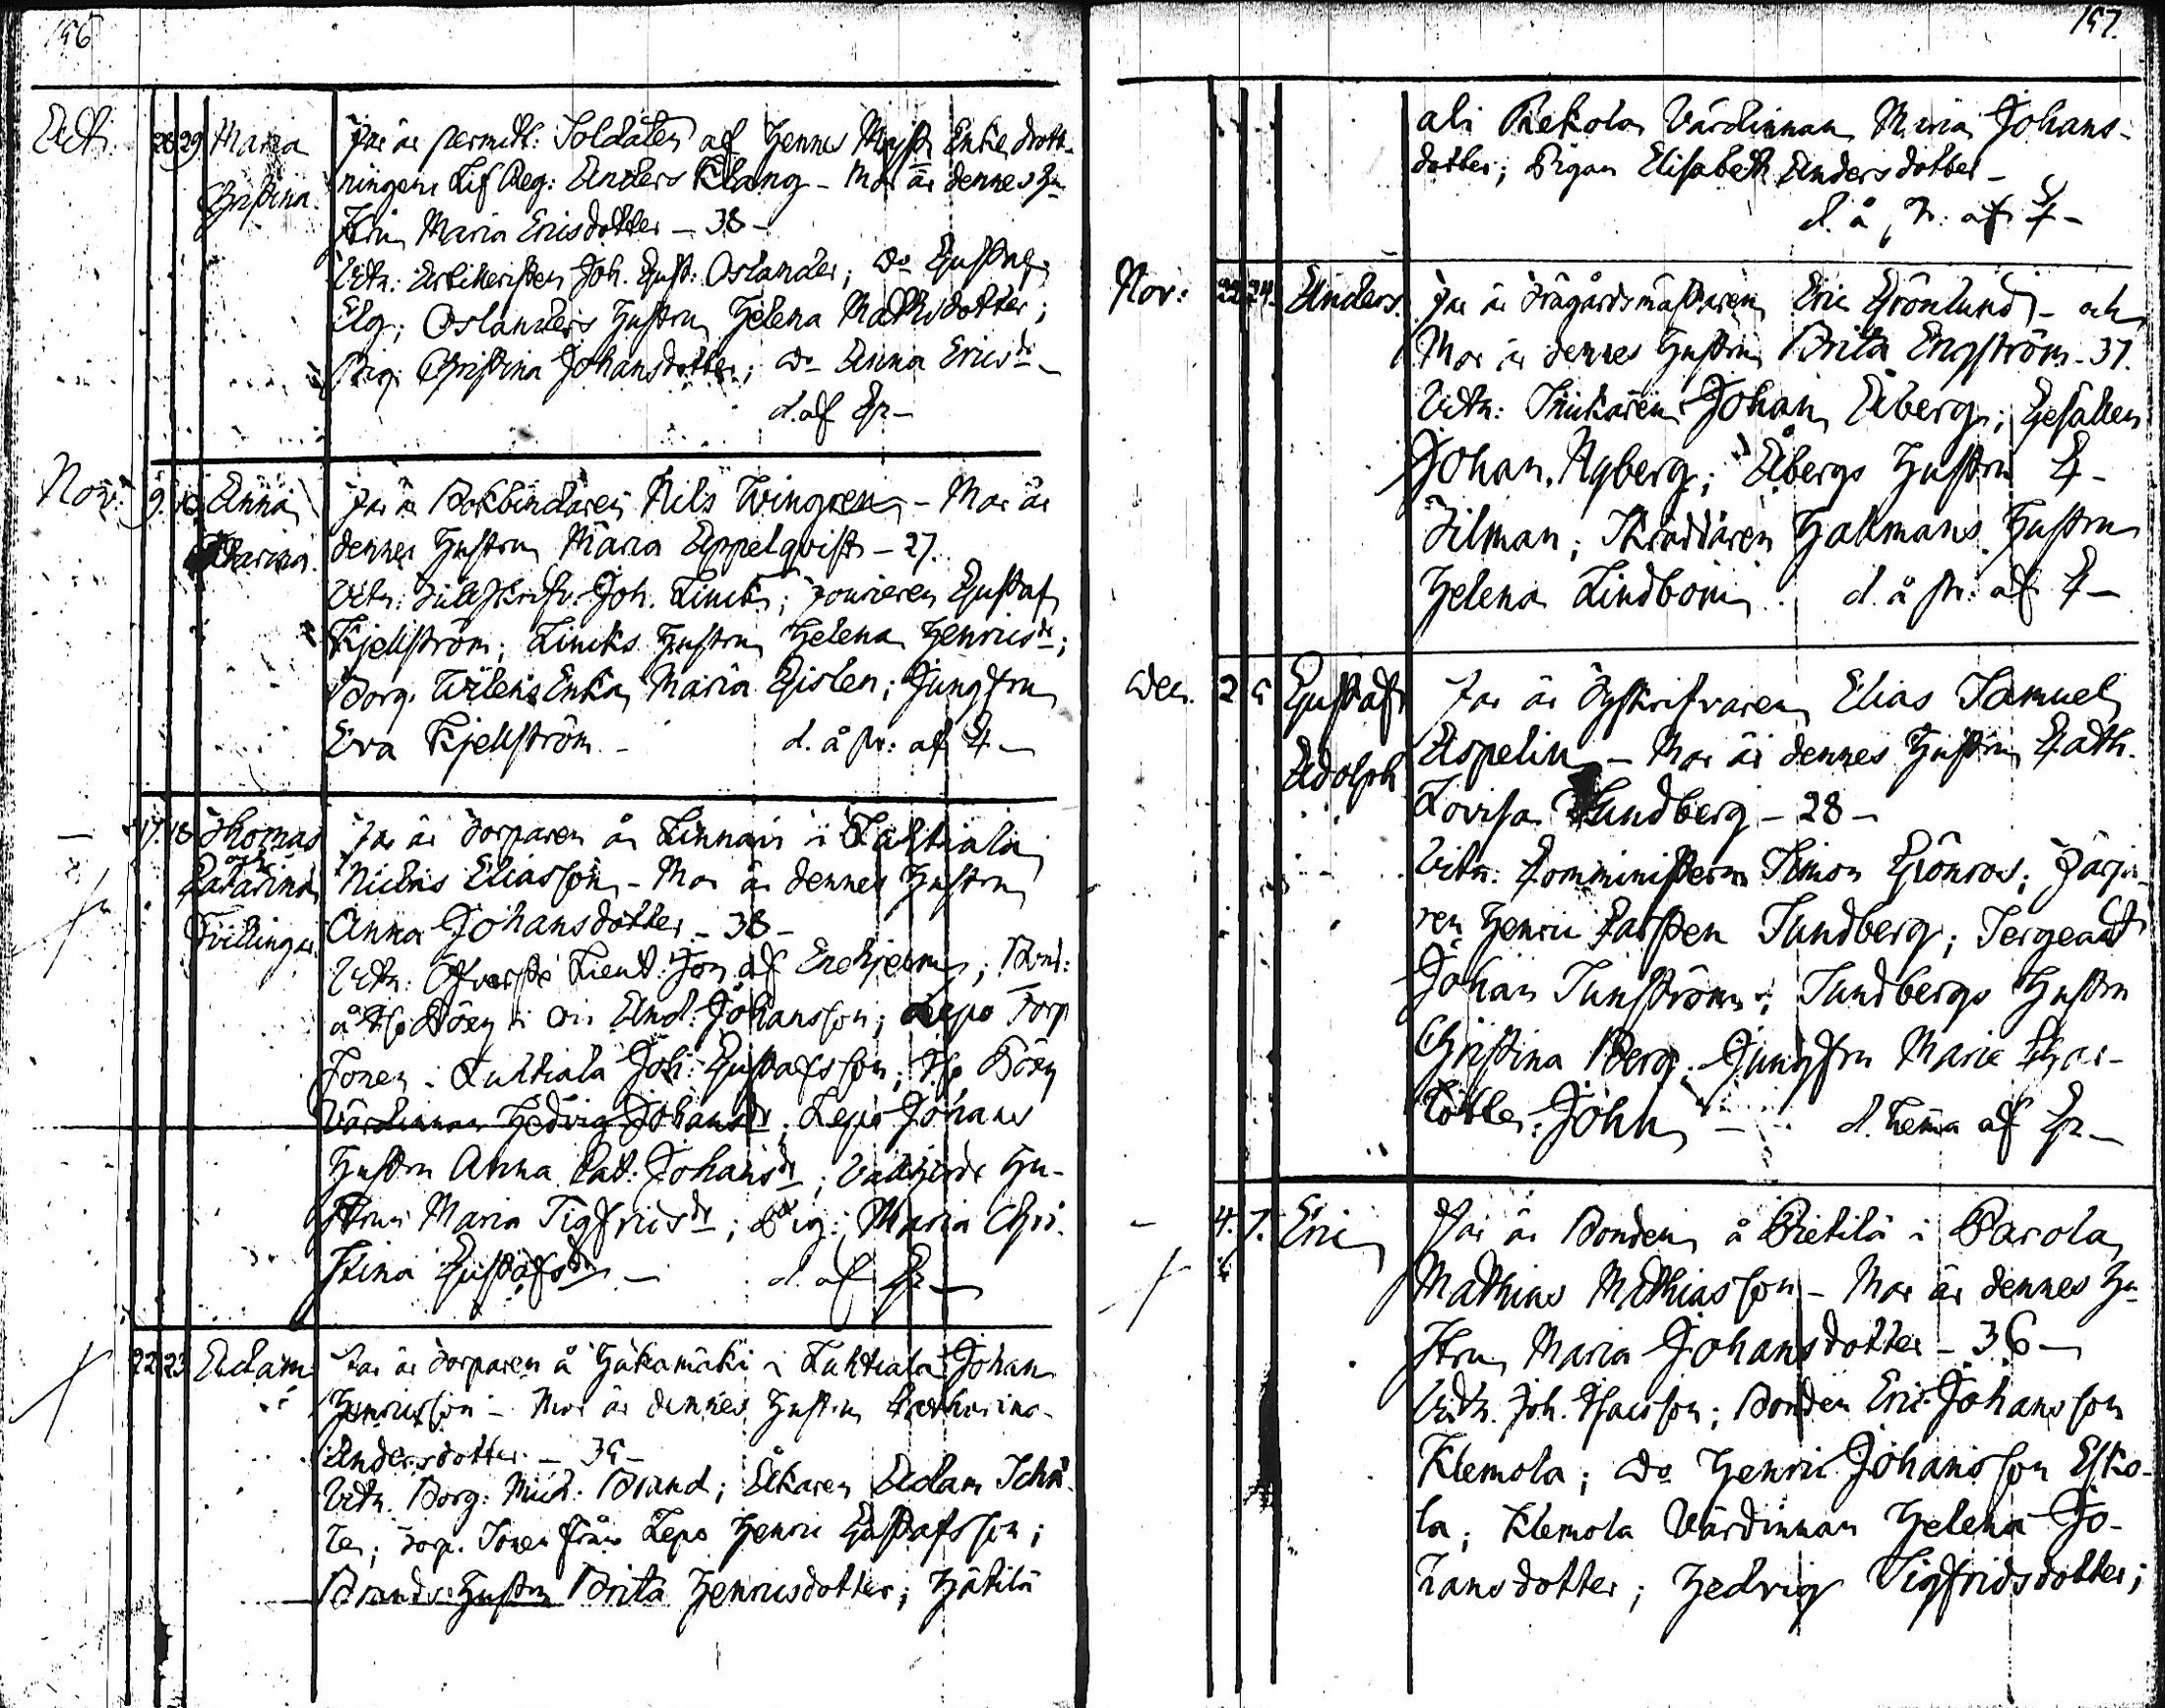 156
Oct: 28 29 Maria Christina.
Far är permitt: Soldaten af Hennes Maj:st Enke drott-
ningens Lif Reg: Anders Klang - Mor är dennes Hu-
stru Maria Ericsdotter - 38 -
Vittn: Joh. Gust: Oslander; do Gustaf
Elg; Oslanders Hustru Helena Mathsdotter;
Pig: Christina Johansdotter; do Anna Ericsdr -
d. af Gr -
Nov: 9. 10. Anna Catharina.
Far är Bokbindaren Nils Wingren - Mor är
dennes Hustru Maria Appelqvist - 27.
Vittn: Joh. Linck; Gustaf
Kjellström; Lincks Hustru Helena Henricsdr;
Borg. Enka Maria Gislen; Jungfru
Eva Kjellström - d. å pr: af 4 -
- 17. 18 Thomas och Catarina Tvillingar
Far är Torparen å Linnais i Luhtiala
Niclas Eliasson - Mor är dennes Hustru
Anna Johansdotter - 38 -
Vittn: Öfverste Lieut: Jon af Enehjelm; Bond:
å i And: Johansson; Lepo Torp
Sonen i Luhtiala Joh: Gustafsson;
Värdinnan Hedvig Johansdr; Lepo Johans
Hustru Anna Cat: Johansdr; Hu-
stru Maria Sigfridsdr; Pig: Maria Chri-
stina Gustafsdr - d. af Gr -
22 23 Adam
Far är Torparen å Häkämäki i Luhtiala Johan
Henricsson - Mor är dennes Hustru Catharina
Andersdotter - 35 -
Vittn. Borg: Mich: Brand; Åkaren Adam Schä-
ler; Torp. Sonen från Lepo Henric Gustafsson;
Brands Hustru Brita Henricsdotter; Hätilä
157.
ali Pekola Värdinnan Maria Johans-
dotter; Pigan Elisabeth Andersdotter -
d. å pr: af 4 -
Nov: 22 24. Anders.
Far är Trägårdsmästaren Eric Grönlund - och
Mor är dennes Hustru Brita Engström - 37.
Vittn: Snickaren Johan Åberg; Gesällen
Johan Nyberg; Åbergs Hustru C -
Tilman; Skräddaren Hallmans Hustru
Helena Lindbom. d. å pr: af 4 -
Dec. 2 5 Gustaf Adolph
Far är Tygskrifvaren Elias Samuel
Aspelin - Mor är dennes Hustru Cath.
Lovisa Sundberg - 28 -
Vittn: Comministern Simon Grönros; Färga-
ren Henric Carsten Sundberg; Sergeant
Johan Sunström; Sundbergs Hustru
Christina Berg; Jungfru Marie Char-
lotte John - d. hema af Gr -
- 4. 7. Eric
Far är Bonden å Pietilä i Parola
Mathias Mathiasson - Mor är dennes Hu-
stru Maria Johansdotter - 36 -
Vittn. Joh. Isacsson; Bonden Eric Johansson
Klemola; do Henric Johansson Esko-
la; Klemola Värdinnan Helena Jo-
hansdotter; Hedvig Sigfridsdotter;